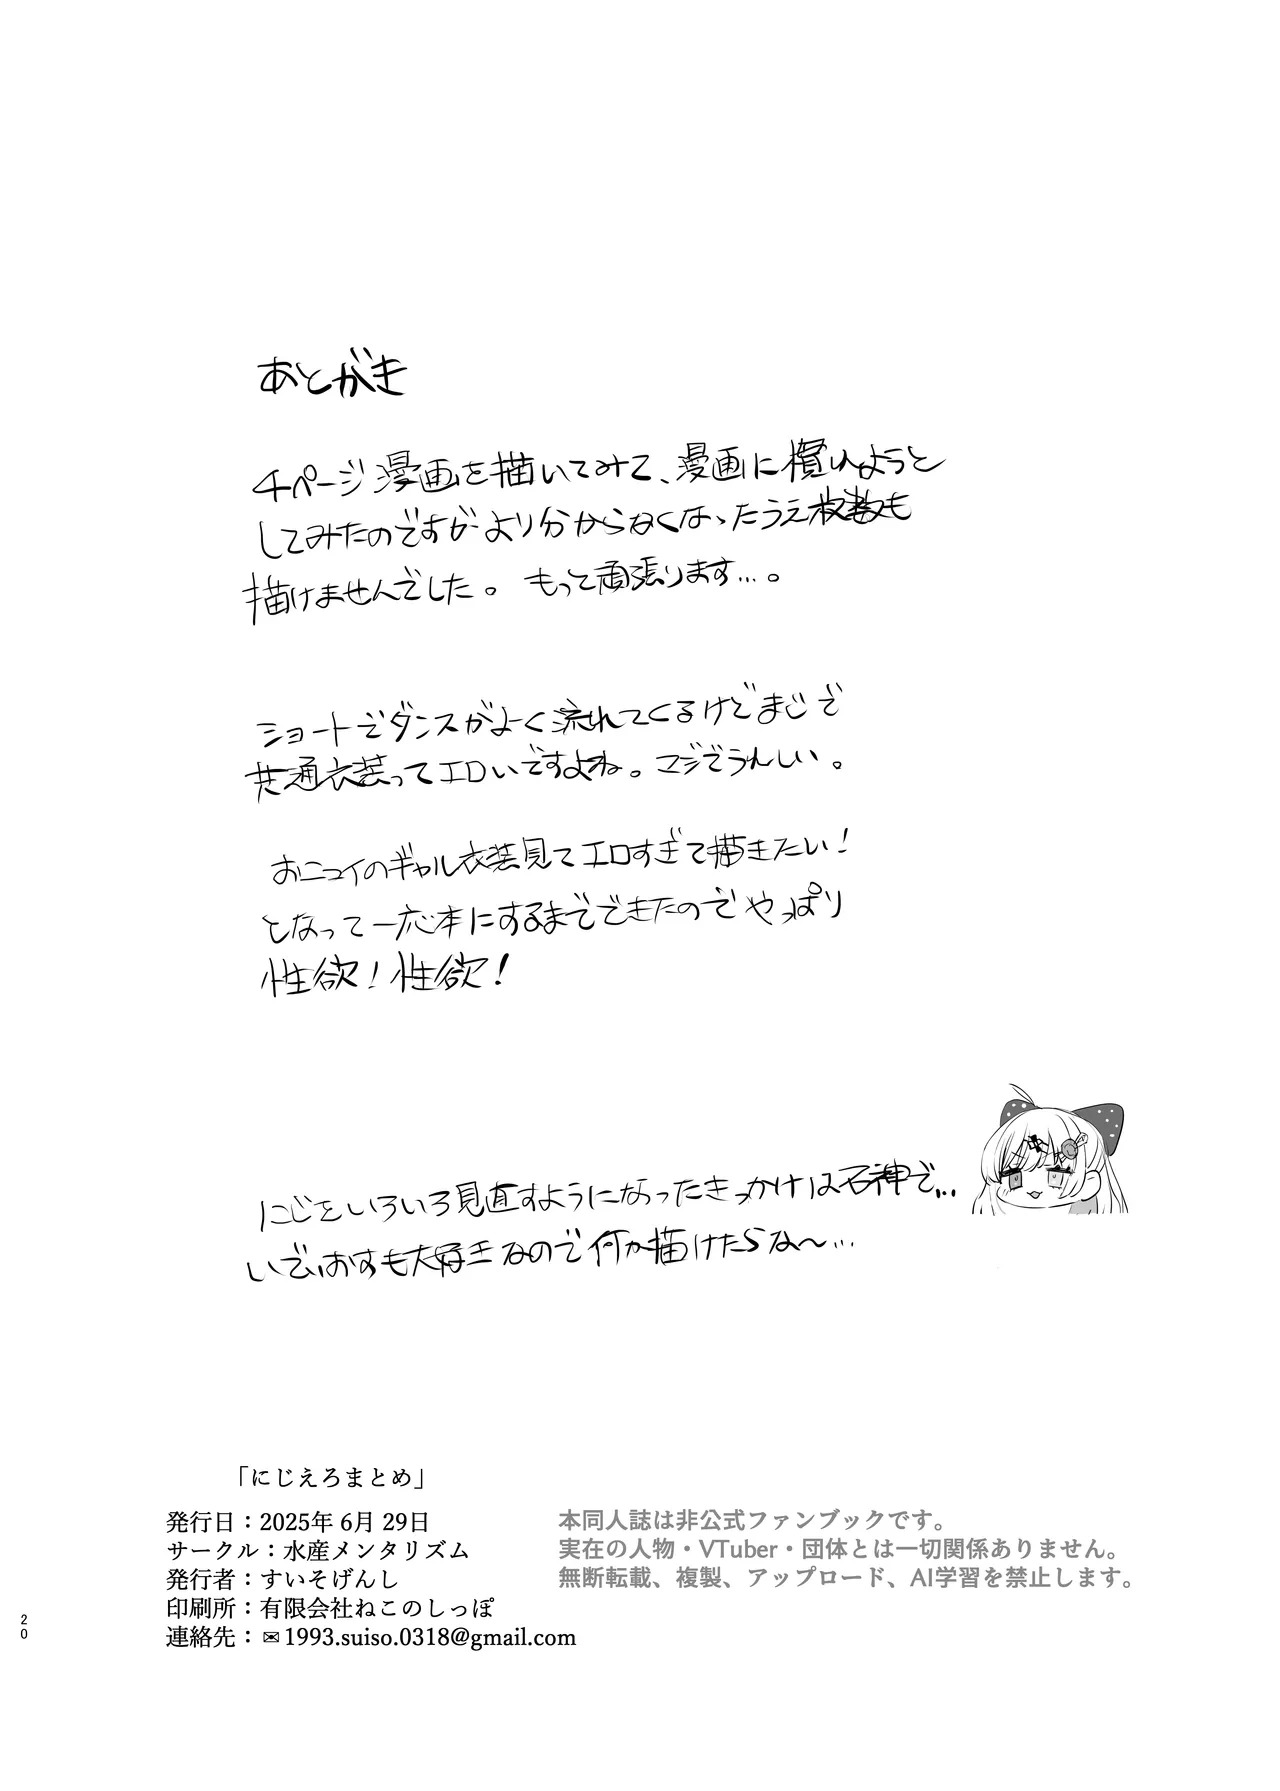 あとがき
4ページ漫画を描いてみて、漫画に慣れようと
してみたのですがより分からなくなったうえ枚数も
描けませんでした。もって頑張ります…。
ショートでダンスがよく流れてくるけどまじで
共通衣装ってエロいですよね。マジでうれしい。
おニュイのギャル衣装見てエロすぎて描きたい！
となって一応本にするまでできたのでやっぱり
性欲！性欲！
にじをいろいろ見直すようになったきっかけは石神で…
いでぃおすも大好きなので何か描けたらな〜…
「にじえろまとめ」
発行日：2025年 6月 29日
サークル：水産メンタリズム
発行者：すいそげんし
印刷所：有限会社ねこのしっぽ
連絡先：✉1993.suiso.0318@gmail.com
本同人誌は非公式ファンブックです。
実在の人物・VTuber・団体とは一切関係ありません。
無断転載、複製、アップロード、AI学習を禁止します。
20